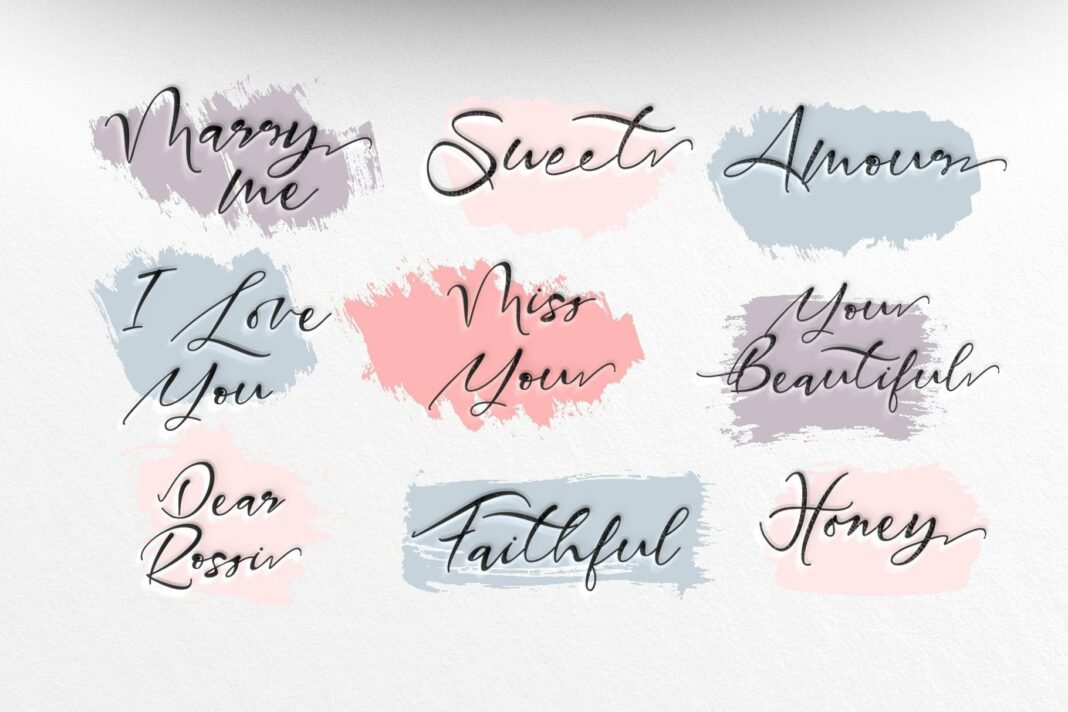 Marry
me
Sweet
Amour
I Love
You
Miss
You
You
Beautiful
Dear
Rossi
Faithful
Honey